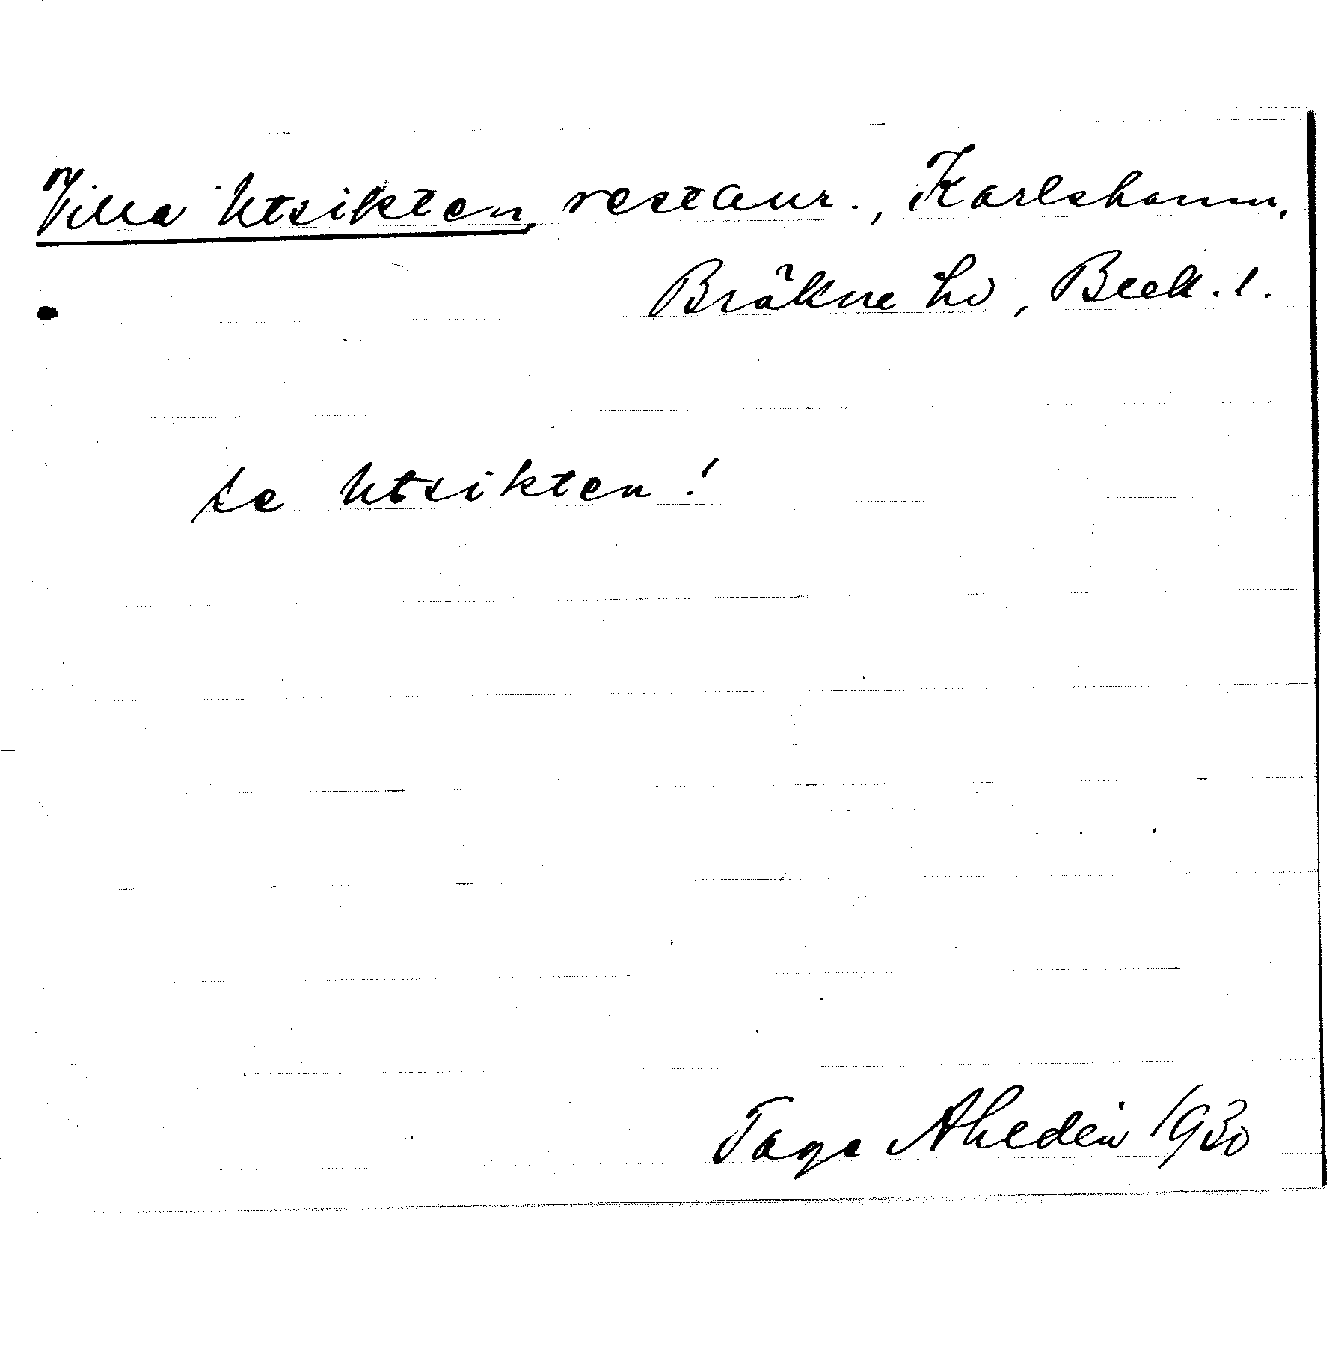 Villa Utsikten, restaur., Karlshamn,
Bräkne hd, Blek. l.
se Utsikten!
Tage Ahldén 1930